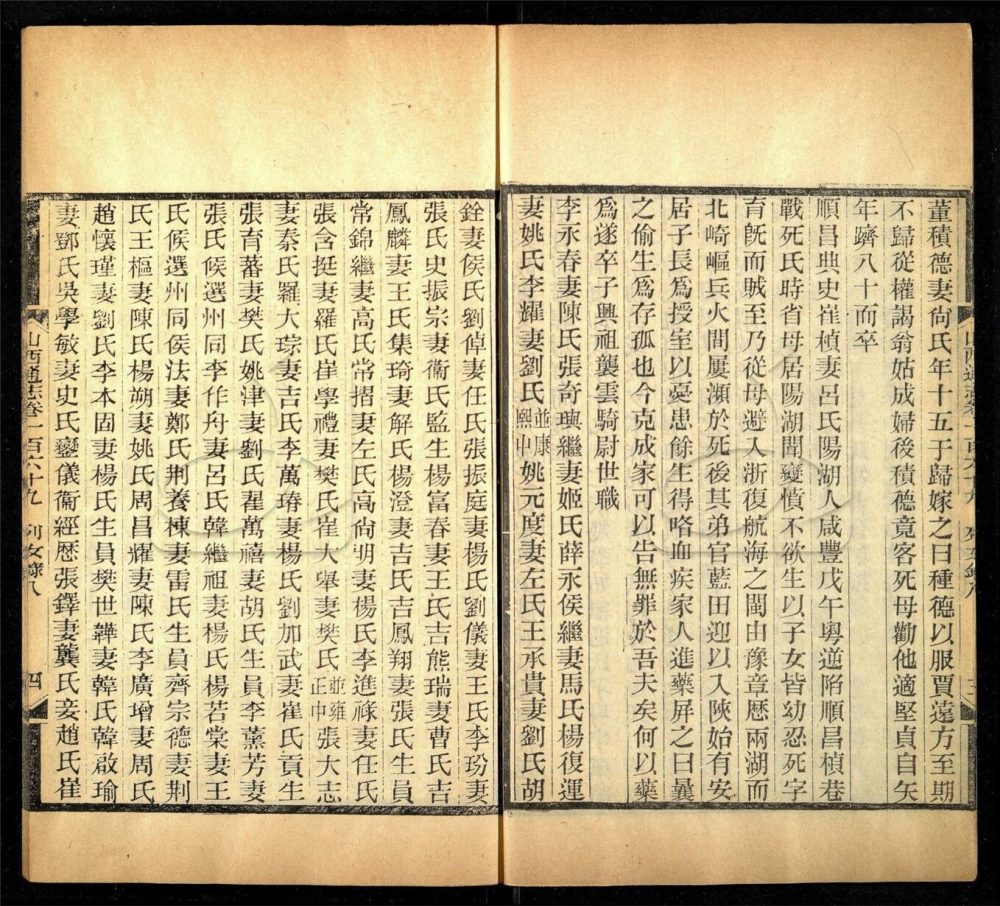 董積德妻尙氏年十五于歸嫁之日種德以服賈遠方至期
不歸從權謁翁姑成婦後積德竟客死母勸他適堅貞自矢
年躋八十而卒
順昌典史崔楨妻呂氏陽湖人咸豐戊午粵逆陷順昌楨巷
戰死氏時省母居陽湖聞變憤不欲生以子女皆幼忍死字
育旣而賊至乃從母避入浙復航海之閩由豫章歴兩湖而
北崎嶇兵火間屢瀕於死後其弟官藍田迎以入陝始有安
居子長爲授室以憂患餘生得咯血疾家人進藥屏之曰曩
之偷生爲存孤也今克成家可以告無罪於吾夫矣何以藥
爲遂卒子興祖襲雲騎尉世職
李永春妻陳氏張奇璵繼妻姬氏薛永侯繼妻馬氏楊復運
妻姚氏李耀妻劉氏並康熙中姚元度妻左氏王承貴妻劉氏胡
銓妻侯氏劉倬妻任氏張振庭妻楊氏劉儀妻王氏李玢妻
張氏史振宗妻衞氏監生楊富春妻王氏吉熊瑞妻曹氏吉
鳳麟妻王氏集琦妻解氏楊澄妻吉氏吉鳳翔妻張氏生員
常錦繼妻高氏常摺妻左氏高尙明妻楊氏李進祿妻任氏
張含挺妻羅氏崔學禮妻樊氏崔大舉妻樊氏並雍正中張大志
妻泰氏羅大琮妻吉氏李萬瑃妻楊氏劉加武妻崔氏貢生
張育蕃妻樊氏姚津妻劉氏翟萬禧妻胡氏生員李薰芳妻
張氏候選州同李作舟妻呂氏韓繼祖妻楊氏楊若棠妻王
氏候選州同侯法妻鄭氏荆養棟妻雷氏生員齊宗德妻荆
氏王樞妻陳氏楊朔妻姚氏周昌耀妻陳氏李廣增妻周氏
趙懷瑾妻劉氏李本固妻楊氏生員樊世韡妻韓氏韓啟瑜
妻鄧氏吳學敏妻史氏鑾儀衞經歴張鐸妻龔氏妾趙氏崔
山西通志卷一百六十九 列女錄八 四